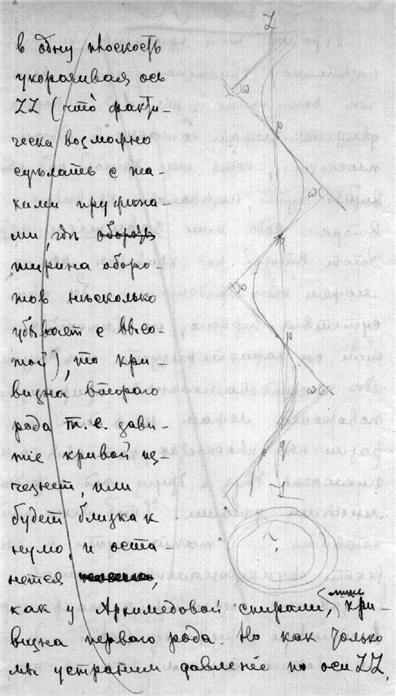 в одну плоскость
укорачивая ось
ZZ (что факти-
чески возможно
сделать с та-
кими пружина-
ми, гдѣ оборотъ
ширина оборо-
товъ нѣсколько
убываетъ с высо-
той), то кри-
визна второго
рода т.е. зави-
тіе кривой ис-
чезнетъ, или
будетъ близка к
нулю и оста-
нется
какъ у Архимедовой спирали, лишь кри-
визна перваго рода. Но какъ только
мы устранимъ давленіе по оси ZZ,
Z
ω
p
ω
q
ω
p
ω
q
Z